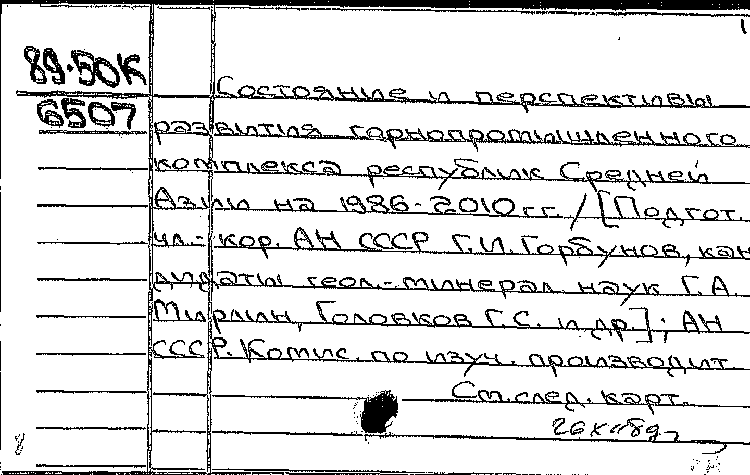 89-50К
6507
Состояние и перспективы
развития горнопромышленного
комплекса республик Средней
Азии на 1986-2010 гг. / [Подгот.
чл.-кор. АН СССР Г.И. Горбунов, кан
дидаты геол.-минерал. наук Г.А
Мирлин, Головков Г.С. и др.]; АН
СССР. Комис. по изуч. производит.
См. след. карт.
8